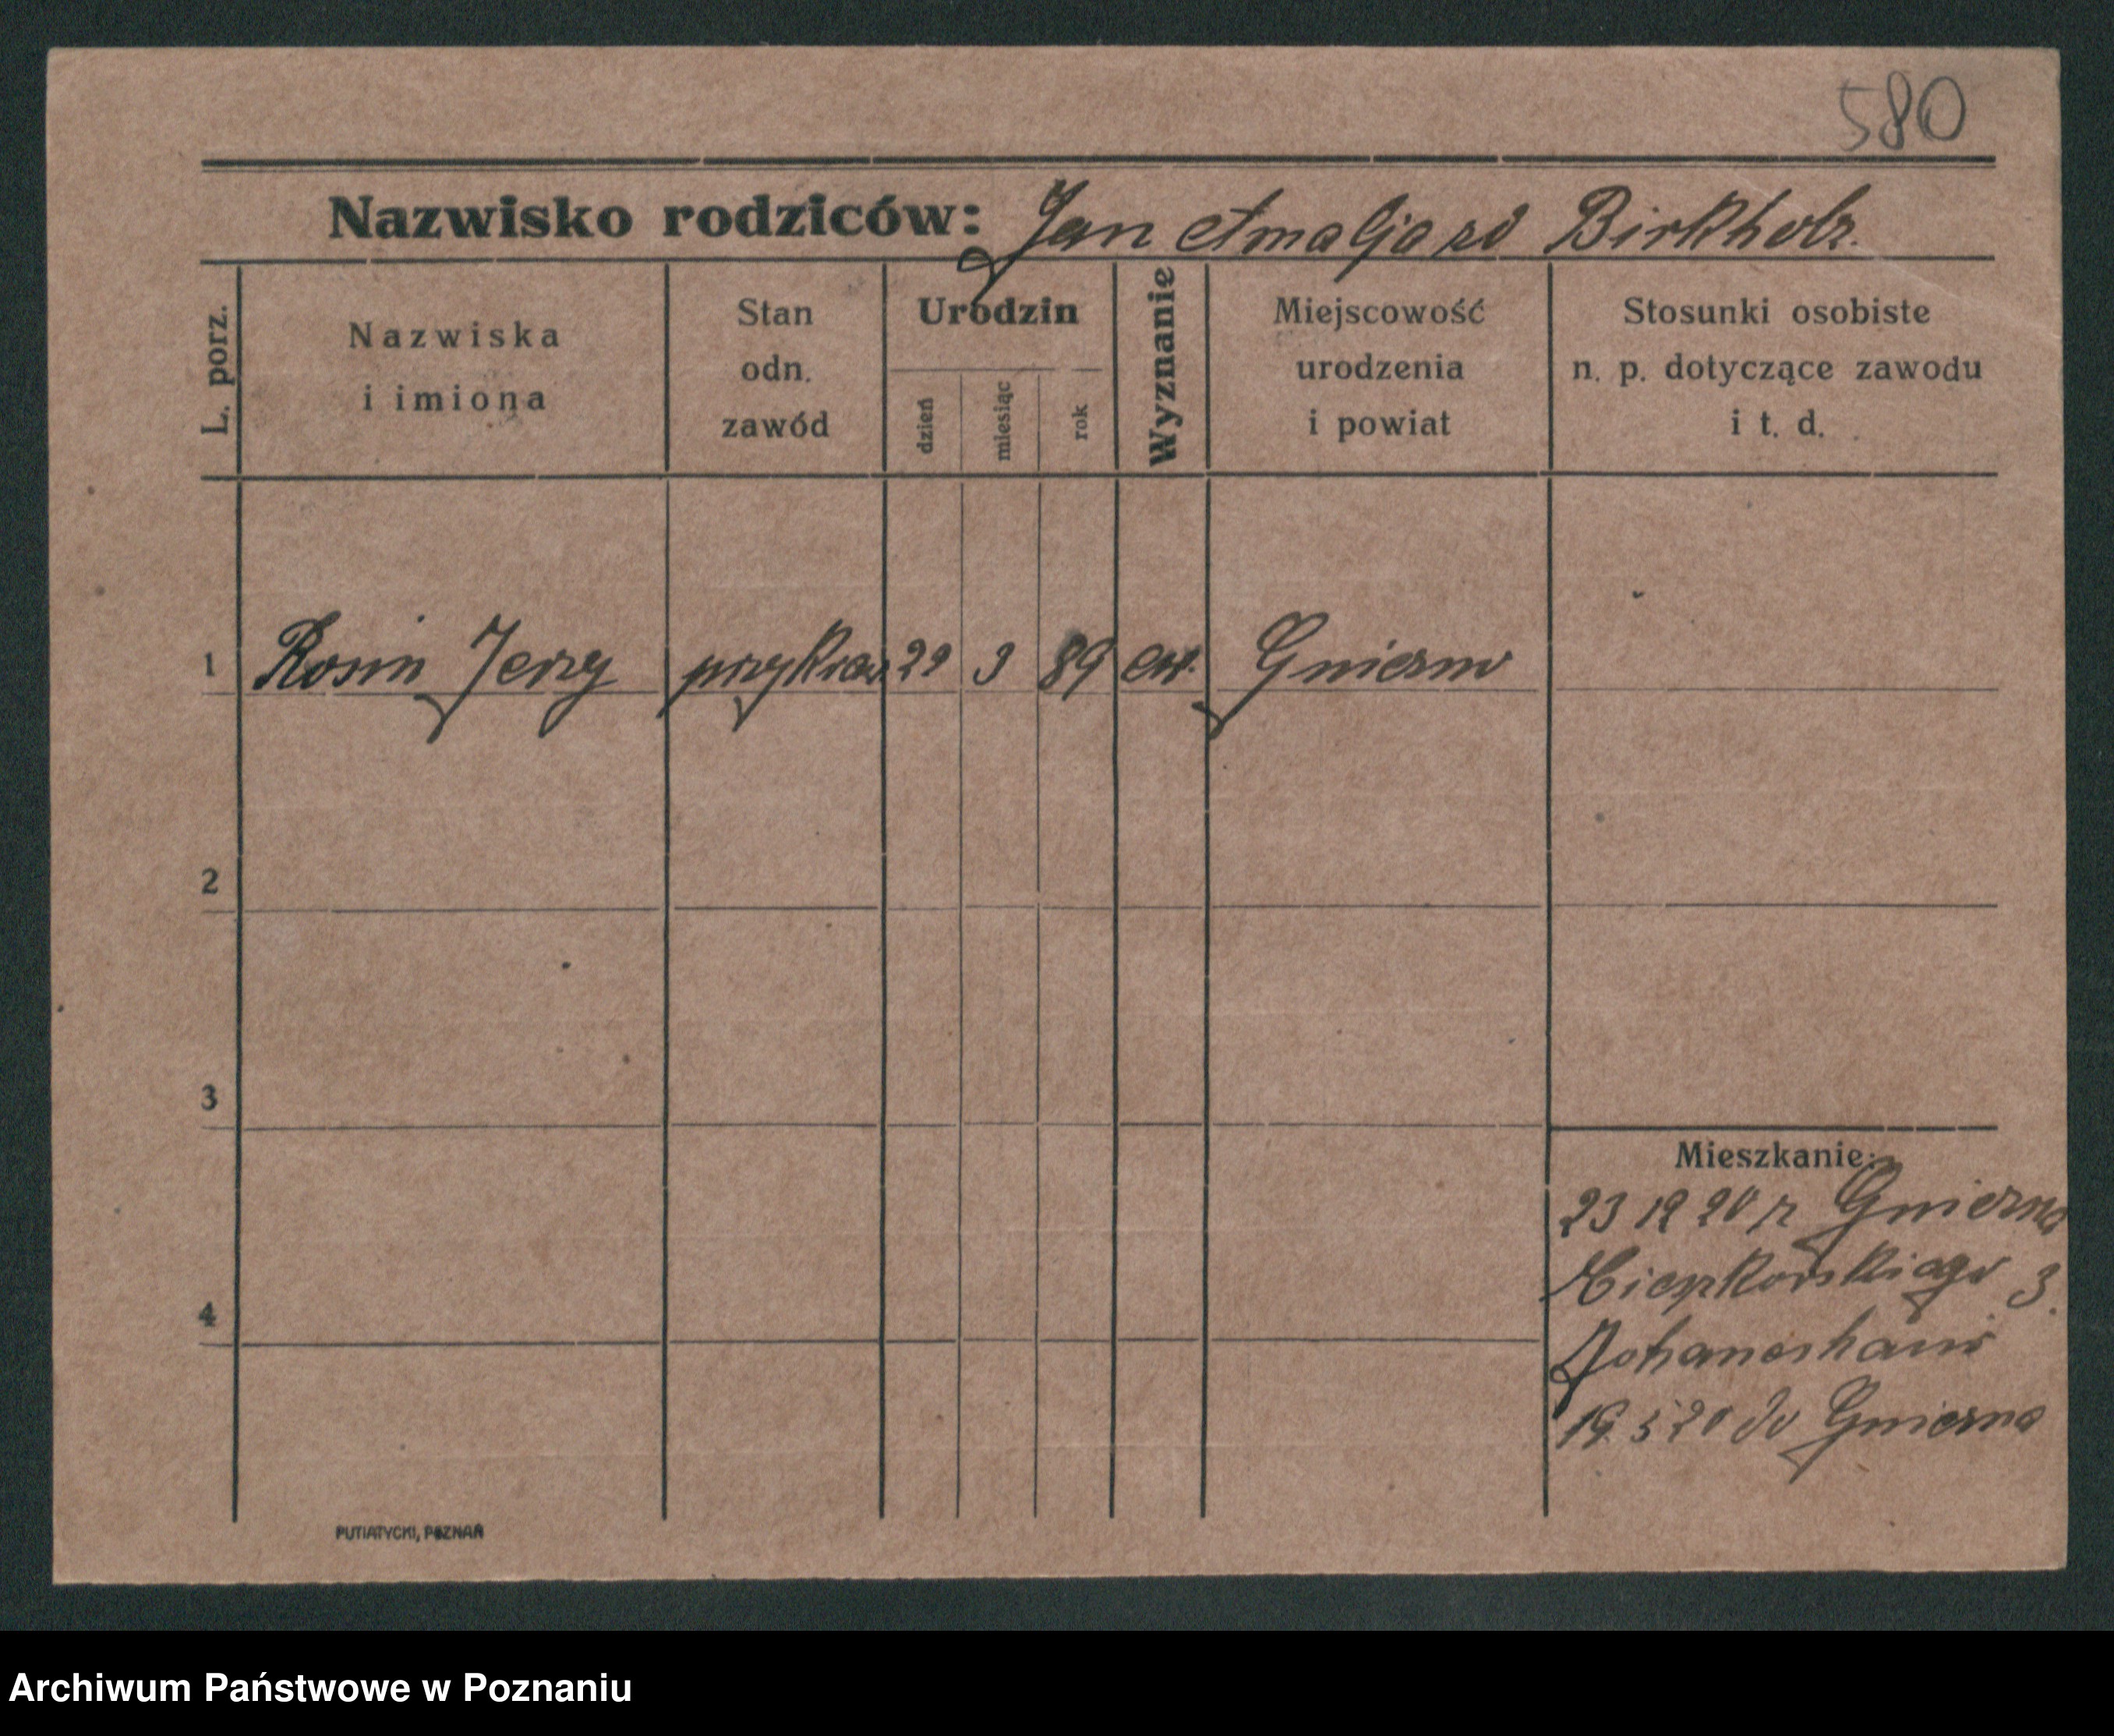 580
Nazwisko rodziców: Jan Amalja zd Birkholz.
L. porz.
Nazwiska
i imiona
Stan
odn.
zawód
Urodzin
dzień
miesiąc
rok
Wyznanie
Miejscowość
urodzenia
i powiat
Stosunki osobiste
n. p. dotyczące zawodu
i t. d.
1 Rosin Jerzy 29 3 89 ew. Gniezno
2
3
4
Mieszkanie:
23 12 20 r Gniezno
3.
19. 5 20 do Gniezna
PUTIATYCKI, POZNAŃ
Archiwum Państwowe w Poznaniu